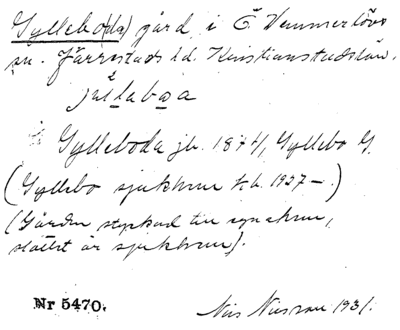 Gyllebo(da) gård i Ö Vemmerlövs
sn. Järrestads hd. Kristianstads län.
Gylleboda jb. 1874, Gyllebo G.
(Gyllebo sjukhem tk. 1927–.)
(Gården styckad till egnahem,
slottet är sjukhem).
Nr 5470. Nils Nilsson 1931.